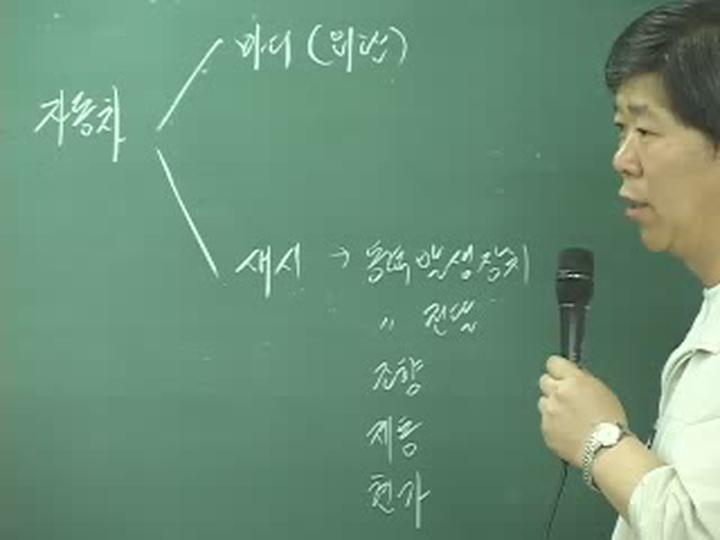 바디 (외관)
자동차
섀시 → 동력발생장치
〃 전달
조향
제동
현가